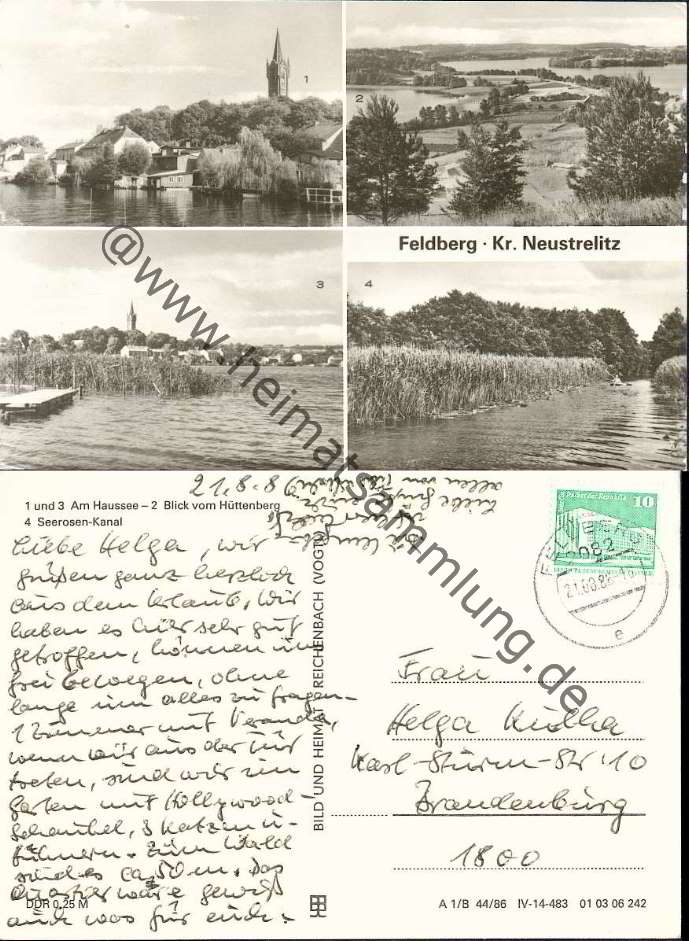 1
2
Feldberg · Kr. Neustrelitz
3
4
@www.heimatsammlung.de
21.8.8
1 und 3 Am Haussee – 2 Blick vom Hüttenberg
4 Seerosen-Kanal
Liebe Helga, wir
grüßen ganz herzlich
aus dem Urlaub, wir
haben es hier sehr gut
getroffen, können uns
frei bewegen, ohne
lange um alles zu fragen –
1 Zimmer mit Veranda,
wenn wir aus der Tür
treten, sind wir im
Garten mit Hollywood-
schaukel, 3 Katzen u.
Hühnern. Zum Wald
sind es ca. 50 m. Das
Quartier wäre gewiß
auch was für euch.
Liebe Grüße
allen von
DDR 0,25 M
BILD UND HEIMAT REICHENBACH (VOGTL)
Palast der Republik
10
DDR
FELDBERG
2082
21.08.86
e
Frau
Helga
Karl-Sturm-Str. 10
Brandenburg
1800
A 1/B 44/86 IV-14-483 01 03 06 242